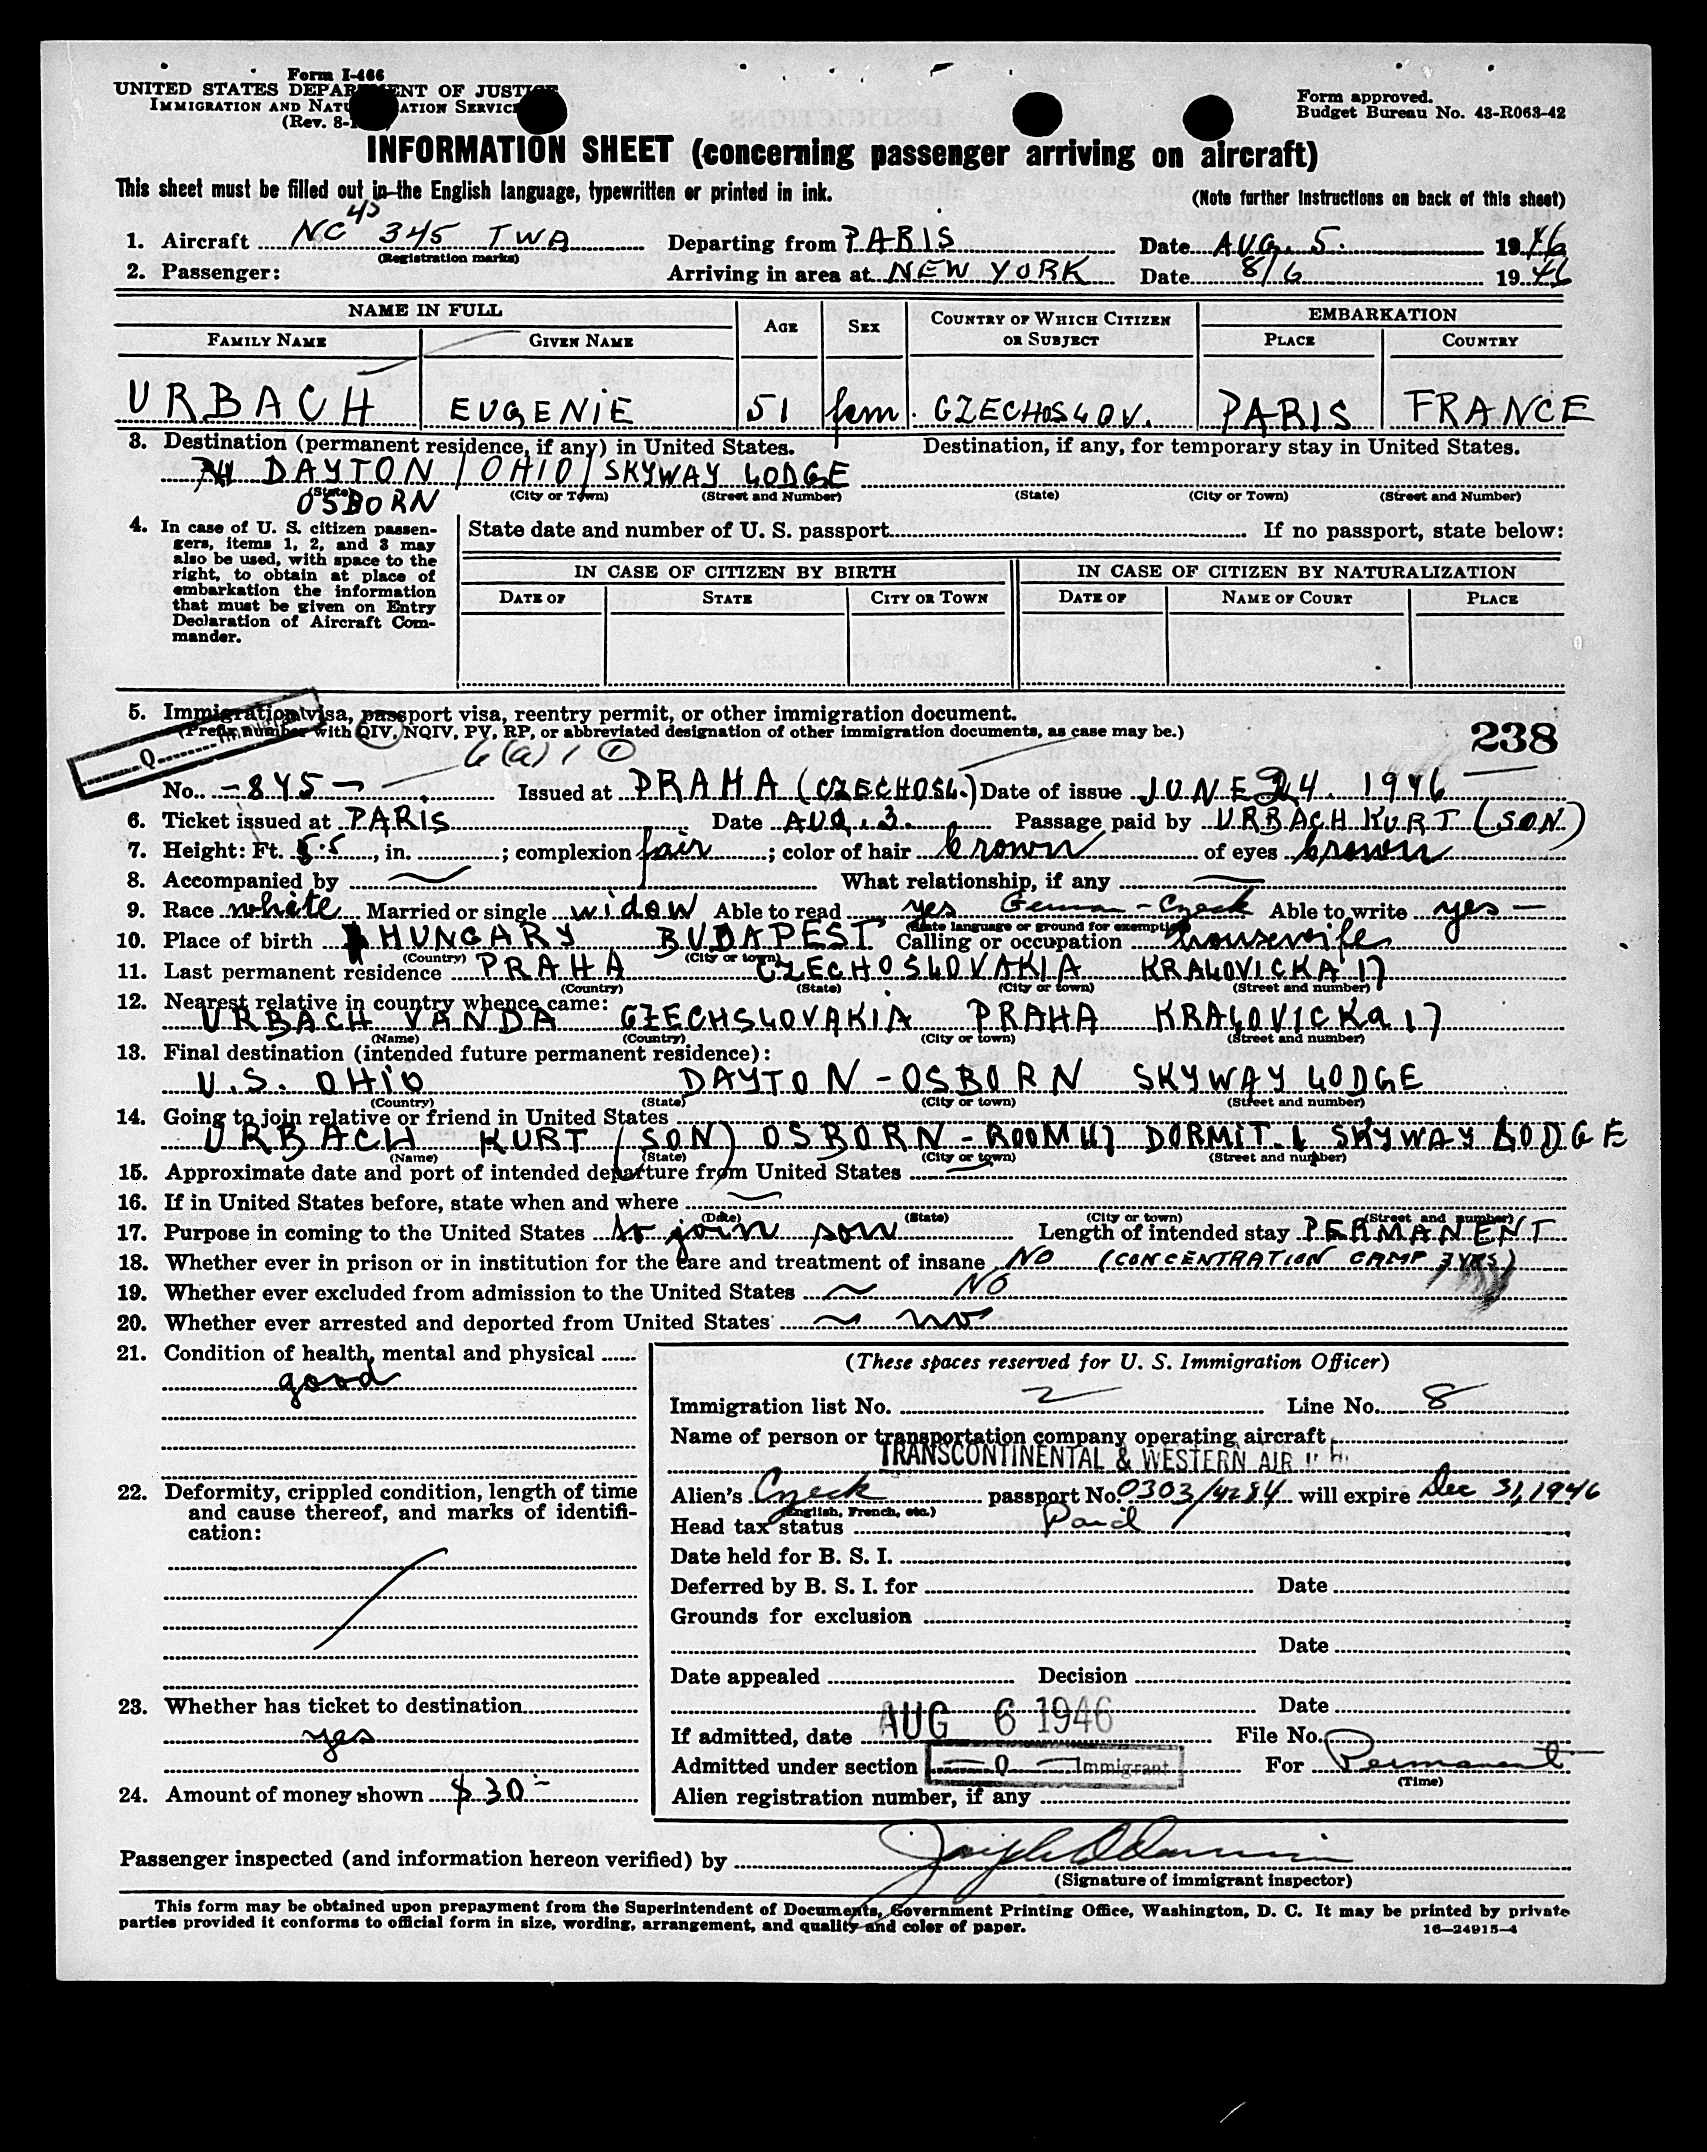 Form I-466
UNITED STATES DEPARTMENT OF JUSTICE
IMMIGRATION AND NATURALIZATION SERVICE
(Rev. 8-
Form approved.
Budget Bureau No. 43-R063-42
INFORMATION SHEET (concerning passenger arriving on aircraft)
This sheet must be filled out in the English language, typewritten or printed in ink.
(Note further instructions on back of this sheet)
1. Aircraft NC 45 345 TWA Departing from PARIS Date AUG. 5. 1946
(Registration marks)
2. Passenger: Arriving in area at NEW YORK Date 8/6 1946
NAME IN FULL AGE SEX COUNTRY OF WHICH CITIZEN OR SUBJECT EMBARKATION
FAMILY NAME GIVEN NAME PLACE COUNTRY
URBACH EUGENIE 51 fem. CZECHOSLOV. PARIS FRANCE
3. Destination (permanent residence, if any) in United States. Destination, if any, for temporary stay in United States.
DAYTON / OHIO / SKYWAY LODGE
(State) (City or Town) (Street and Number) (State) (City or Town) (Street and Number)
OSBORN
4. In case of U. S. citizen passengers, items 1, 2, and 3 may also be used, with space to the right, to obtain at place of embarkation the information that must be given on Entry Declaration of Aircraft Commander.
State date and number of U. S. passport If no passport, state below:
IN CASE OF CITIZEN BY BIRTH IN CASE OF CITIZEN BY NATURALIZATION
DATE OF STATE CITY OR TOWN DATE OF NAME OF COURT PLACE
5. Immigration visa, passport visa, reentry permit, or other immigration document.
(Prefix number with QIV, NQIV, PV, RP, or abbreviated designation of other immigration documents, as case may be.)
238
Q Immigrant
6(a) 1 ①
No. -845- Issued at PRAHA (CZECHOSL.) Date of issue JUNE 24. 1946
6. Ticket issued at PARIS Date AUG. 3. Passage paid by URBACH KURT (SON)
7. Height: Ft. 5.5, in. ; complexion fair ; color of hair brown of eyes brown
8. Accompanied by What relationship, if any
9. Race white Married or single widow Able to read yes German - Czeck Able to write yes -
(State language or ground for exemption)
10. Place of birth HUNGARY BUDAPEST Calling or occupation housewife
(Country) (City or town)
11. Last permanent residence PRAHA CZECHOSLOVAKIA KRALOVICKA 17
(Country) (State) (City or town) (Street and number)
12. Nearest relative in country whence came:
URBACH VANDA CZECHSLOVAKIA PRAHA KRALOVICKa 17
(Name) (Country) (City or town) (Street and number)
13. Final destination (intended future permanent residence):
U.S. OHIO DAYTON - OSBORN SKYWAY LODGE
(Country) (State) (City or town) (Street and number)
14. Going to join relative or friend in United States
URBACH KURT (SON) OSBORN - ROOM 117 DORMIT. 1 SKYWAY LODGE
(Name) (State) (City or town) (Street and number)
15. Approximate date and port of intended departure from United States
16. If in United States before, state when and where
(Date) (State) (City or town) (Street and number)
17. Purpose in coming to the United States to join son Length of intended stay PERMANENT
18. Whether ever in prison or in institution for the care and treatment of insane NO (CONCENTRATION CAMP 3 YRS)
19. Whether ever excluded from admission to the United States NO
20. Whether ever arrested and deported from United States no
21. Condition of health, mental and physical
good
22. Deformity, crippled condition, length of time and cause thereof, and marks of identification:
23. Whether has ticket to destination
yes
24. Amount of money shown $30-
(These spaces reserved for U. S. Immigration Officer)
Immigration list No. 2 Line No. 8
Name of person or transportation company operating aircraft
TRANSCONTINENTAL & WESTERN AIR
Alien's Czeck passport No. 0303/4284 will expire Dec 31, 1946
(English, French, etc.)
Head tax status Paid
Date held for B. S. I.
Deferred by B. S. I. for Date
Grounds for exclusion
Date
Date appealed Decision
Date
If admitted, date AUG 6 1946 File No.
Admitted under section Q Immigrant For Permanent
(Time)
Alien registration number, if any
Passenger inspected (and information hereon verified) by
(Signature of immigrant inspector)
This form may be obtained upon prepayment from the Superintendent of Documents, Government Printing Office, Washington, D. C. It may be printed by private
parties provided it conforms to official form in size, wording, arrangement, and quality and color of paper.
16—24915-4